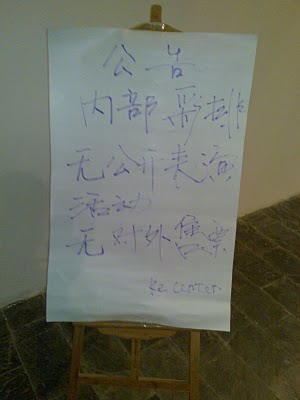 公告
内部彩排
无公开表演
活动
无对外售票
K2 CENTER.